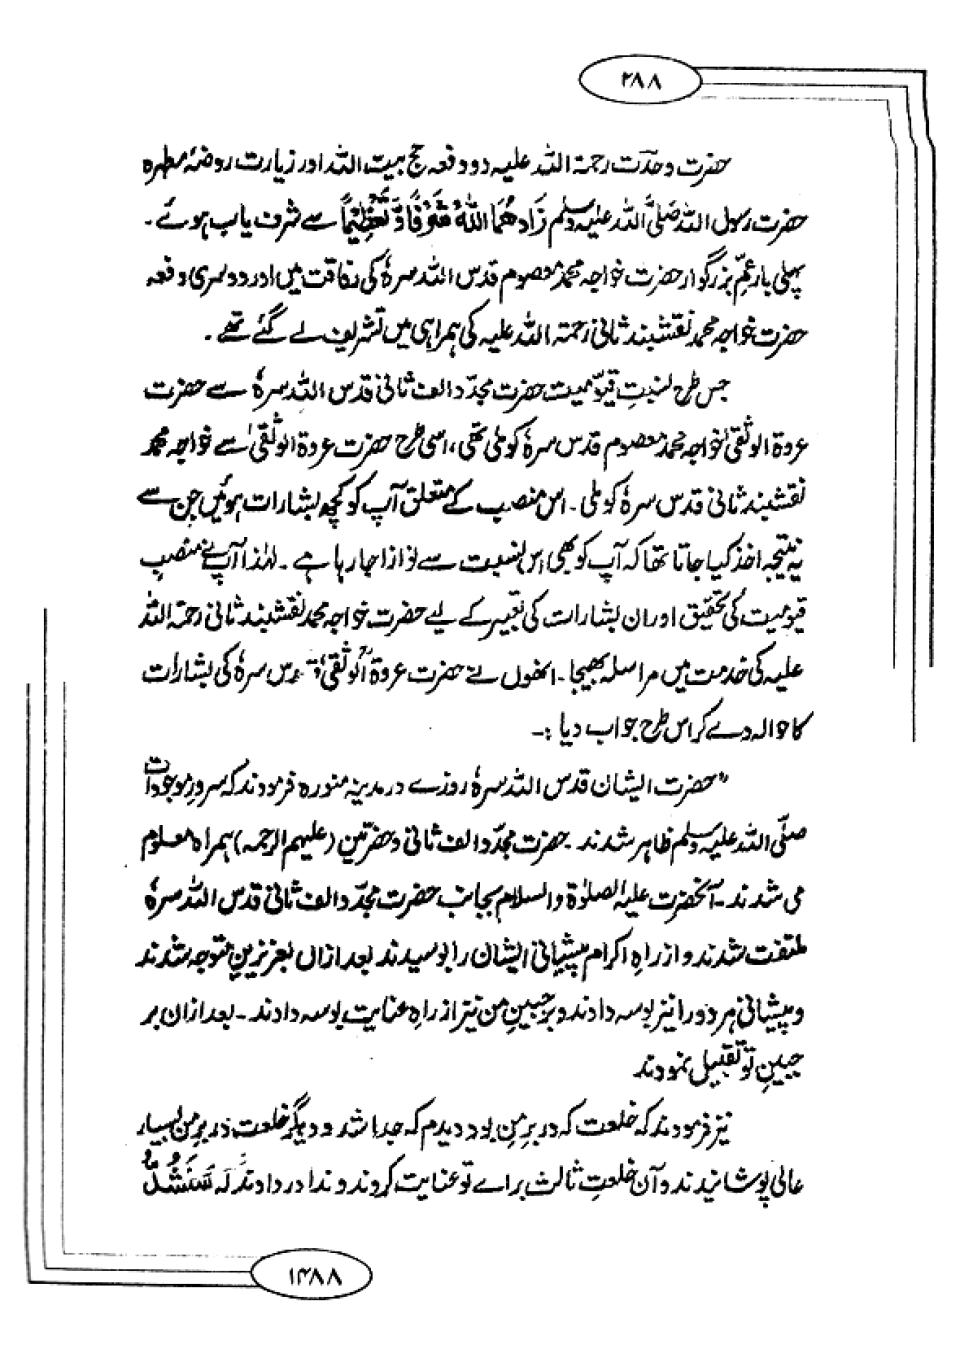 ۲۸۸
حضرت وحدت رحمۃ اللہ علیہ دو دفعہ حج بیت اللہ اور زیارت روضۂ مطہرہ
حضرت رسول اللہ صَلَّی اللہ علیہ وسلم زَادَھُمَا اللّٰہُ شَرَفًا وَّ تَعْظِیْمًا سے شرف یاب ہوئے۔
پہلی بار عمِّ بزرگوار حضرت خواجہ محمد معصوم قدس اللہ سرہٗ کی رفاقت میں اور دوسری دفعہ
حضرت خواجہ محمد نقشبند ثانی رحمۃ اللہ علیہ کی ہمراہی میں تشریف لے گئے تھے۔
جس طرح نسبتِ قیّومیت حضرت مجدّد الف ثانی قدس اللہ سرہٗ سے حضرت
عروۃ الوثقیٰ خواجہ محمد معصوم قدس سرہٗ کو ملی تھی، اسی طرح حضرت عروۃ الوثقیٰ سے خواجہ محمد
نقشبند ثانی قدس سرہٗ کو ملی۔ اس منصب کے متعلق آپ کو کچھ بشارات ہوئیں جن سے
یہ نتیجہ اخذ کیا جاتا تھا کہ آپ کو بھی اس نسبت سے نوازا جا رہا ہے۔ لہٰذا آپ نے منصبِ
قیومیت کی تحقیق اور ان بشارات کی تعبیر کے لیے حضرت خواجہ محمد نقشبند ثانی رحمۃ اللہ
علیہ کی خدمت میں مراسلہ بھیجا۔ انھوں نے حضرت عروۃ الوثقیٰ قدس سرہٗ کی بشارات
کا حوالہ دے کر اس طرح جواب دیا :۔
"حضرت ایشان قدس اللہ سرہٗ روزے در مدینہ منورہ فرمودند کہ سرورِ موجودات
صلَّی اللہ علیہ وسلم ظاہر شدند۔ حضرت مجدّد الف ثانی و حضرتین (علیہم الرحمہ) ہمراہ معلوم
می شدند۔ آنحضرت علیہ الصلوٰۃ والسلام بجانبِ حضرت مجدّد الف ثانی قدس اللہ سرہٗ
ملتفت شدند و از راہِ اکرام پیشانیٔ ایشان را بوسیدند بعد ازاں بعزیزین متوجہ شدند
و پیشانی ہر دو را نیز بوسہ دادند و بر جبینِ من نیز از راہِ عنایت بوسہ دادند۔ بعد ازان بر
جبینِ تو تقبیل نمودند
نیز فرمودند کہ خلعت کہ در برِ من بود دیدم کہ جدا شد و دیگر خلعت در برِ من بسیار
عالی پوشانیدند و آن خلعتِ ثالث براے تو عنایت کردند و ندا در دادند کہ سَنَشُدُّ
۱۲۸۸